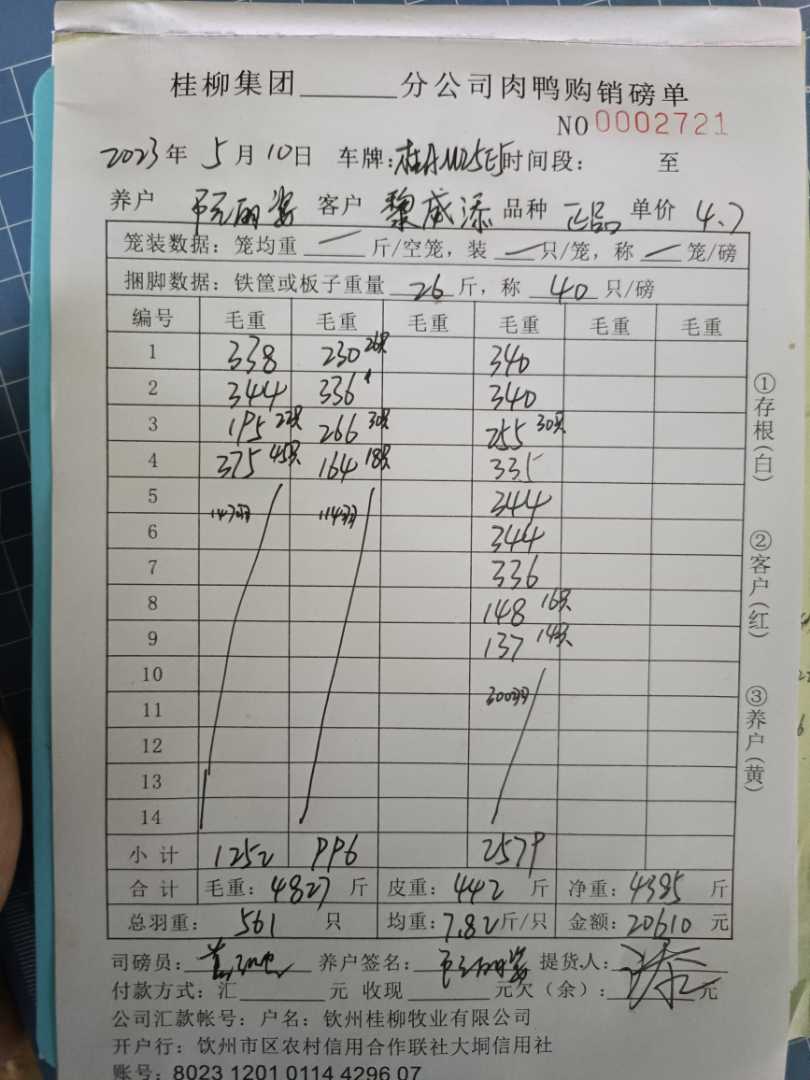 桂柳集团______分公司肉鸭购销磅单
NO 0002721
2023年 5月10日 车牌:桂AM25E5 时间段: 至
养户 客户 黎威添 品种 正品 单价 4.7
笼装数据:笼均重 — 斤/空笼,装 — 只/笼,称 — 笼/磅
捆脚数据:铁筐或板子重量 26 斤,称 40 只/磅
编号 毛重 毛重 毛重 毛重 毛重 毛重
1 338 230 26只 340
2 344 336 340
3 195 23只 266 30只 255 30只
4 375 45只 164 18只 335
5 344
6 344
7 336
8 148 16只
9 137 14只
10
11 300羽
12
13
14
小计 1252 996 2579
合计 毛重:4827 斤 皮重:442 斤 净重:4385 斤
总羽重: 561 只 均重:7.82斤/只 金额:20610 元
司磅员: 养户签名: 提货人:
付款方式:汇______元 收现______元欠(余):______元
公司汇款帐号:户名:钦州桂柳牧业有限公司
开户行:钦州市区农村信用合作联社大垌信用社
账号:8023 1201 0114 4296 07
①存根(白)
②客户(红)
③养户(黄)